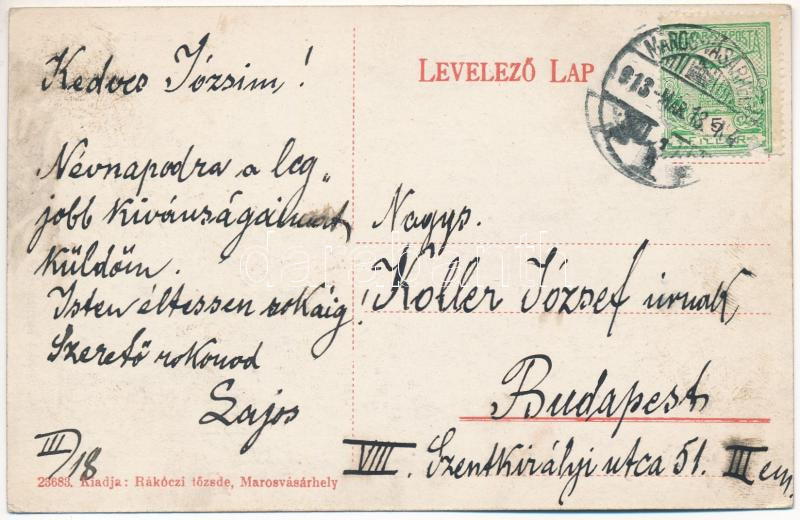 Kedves Józsim!
Névnapodra a leg„
jobb kivánságaimat
küldöm.
Isten éltessen sokáig!
Szerető rokonod
Lajos
III/18
23683. Kiadja: Rákóczi tőzsde, Marosvásárhely
LEVELEZŐ LAP
MAROSVÁSÁRHELY
913 MAR 18
Nagys.
Koller József urnak
Budapest
VIII. Szentkirályi utca 51. III em.
darabanth